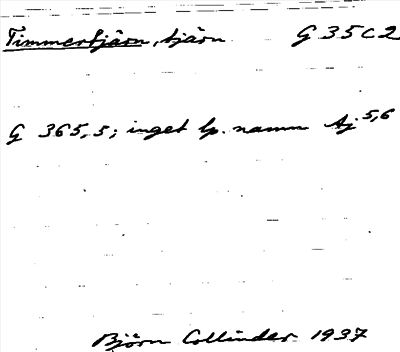 Timmertjärn, tjärn G 35 C 2
G 365,5; inget lp. namn Aj 5,6
Björn Collinder 1937